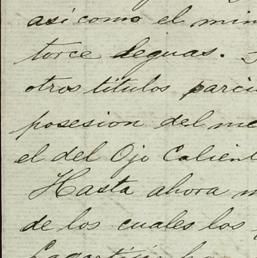 así como el min
torce leguas.
otros titulos parci
posesion del me
el del Ojo Calient
Hasta ahora n
de los cuales los